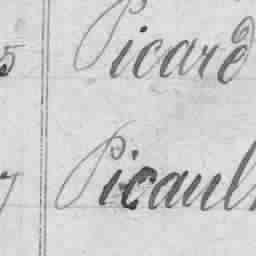 5 Picard
7 Picaul